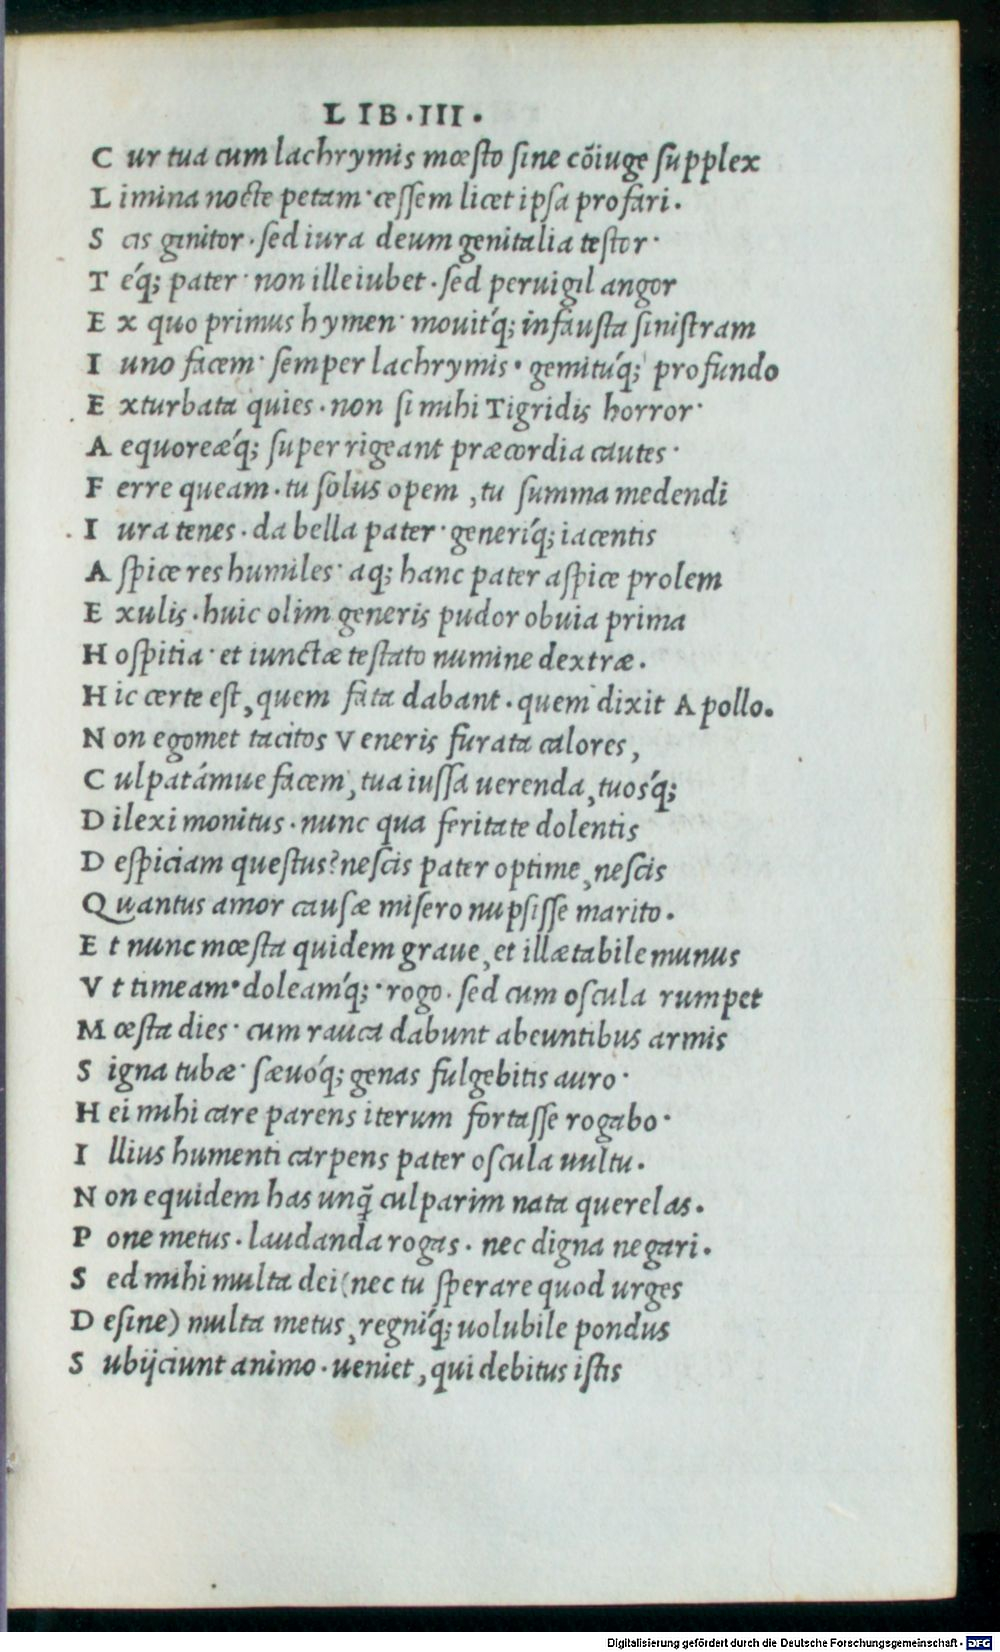 LIB·III·
C ur tua cum lachrymis mœsto sine cõiuge supplex
L imina nocte petam· cessem licet ipsa profari.
S cis genitor· sed iura deum genitalia testor·
T éq; pater· non ille iubet· sed peruigil angor
E x quo primus hymen· mouitq́; infausta sinistram
I uno facem· semper lachrymis· gemituq́; profundo
E xturbata quies· non si mihi Tigridis horror·
A equoreæq́; super rigeant præcordia cautes·
F erre queam· tu solus opem, tu summa medendi
I ura tenes· da bella pater· generiq́; iacentis
A spice res humiles· atq; hanc pater aspice prolem
E xulis· huic olim generis pudor obuia prima
H ospitia· et iunctæ testato numine dextræ.
H ic certe est, quem fata dabant· quem dixit Apollo.
N on egomet tacitos Veneris furata calores,
C ulpatámue facem, tua iussa uerenda, tuosq́;
D ilexi monitus· nunc qua feritate dolentis
D espiciam questus? nescis pater optime, nescis
Q uantus amor causæ misero nupsisse marito.
E t nunc mœsta quidem graue, et illætabile munus
V t timeam· doleamq́;· rogo· sed cum oscula rumpet
M œsta dies· cum rauca dabunt abeuntibus armis
S igna tubæ· sæuóq; genas fulgebitis auro·
H ei mihi care parens iterum fortasse rogabo·
I llius humenti carpens pater oscula uultu.
N on equidem has unq̃ culparim nata querelas.
P one metus· laudanda rogas· nec digna negari.
S ed mihi multa dei (nec tu sperare quod urges
D esine) multa metus, regniq́; uolubile pondus
S ubijciunt animo· ueniet, qui debitus istis
Digitalisierung gefördert durch die Deutsche Forschungsgemeinschaft - DFG